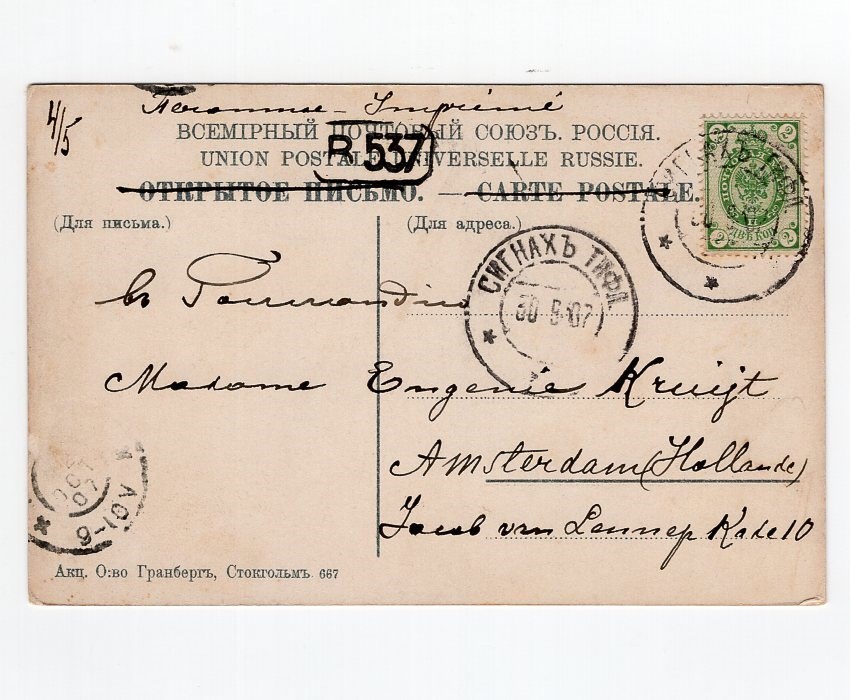 4/5
Печатное - Imprimé
ВСЕМІРНЫЙ ПОЧТОВЫЙ СОЮЗЪ. РОССІЯ.
UNION POSTALE UNIVERSELLE RUSSIE.
R 537
ОТКРЫТОЕ ПИСЬМО. — CARTE POSTALE.
(Для письма.) (Для адреса.)
СИГНАХЪ ТИФЛ.
30 9 07
СИГНАХЪ ТИФЛ.
30 9 07
2 2
2 2
въ Голландію
Madame Eugenie Kruijt
Amsterdam (Hollande)
Jacob van Lennep Kade 10
07
6-10V
Акц. О:во Гранбергъ, Стокгольмъ. 667